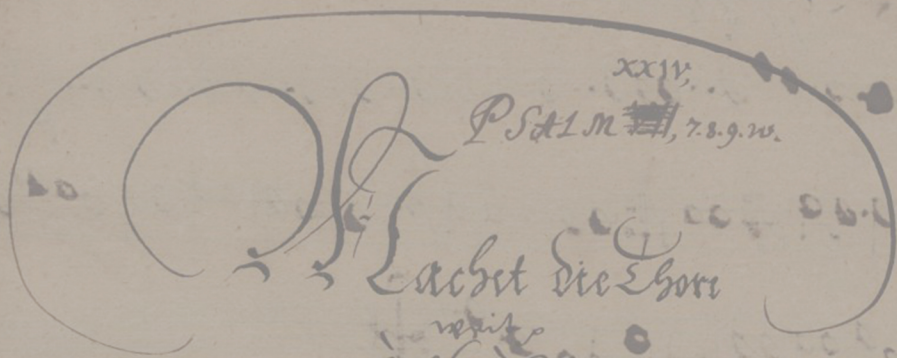 XXIV,
PSALM, 7.8.9.10.
Machet die Thore
weit